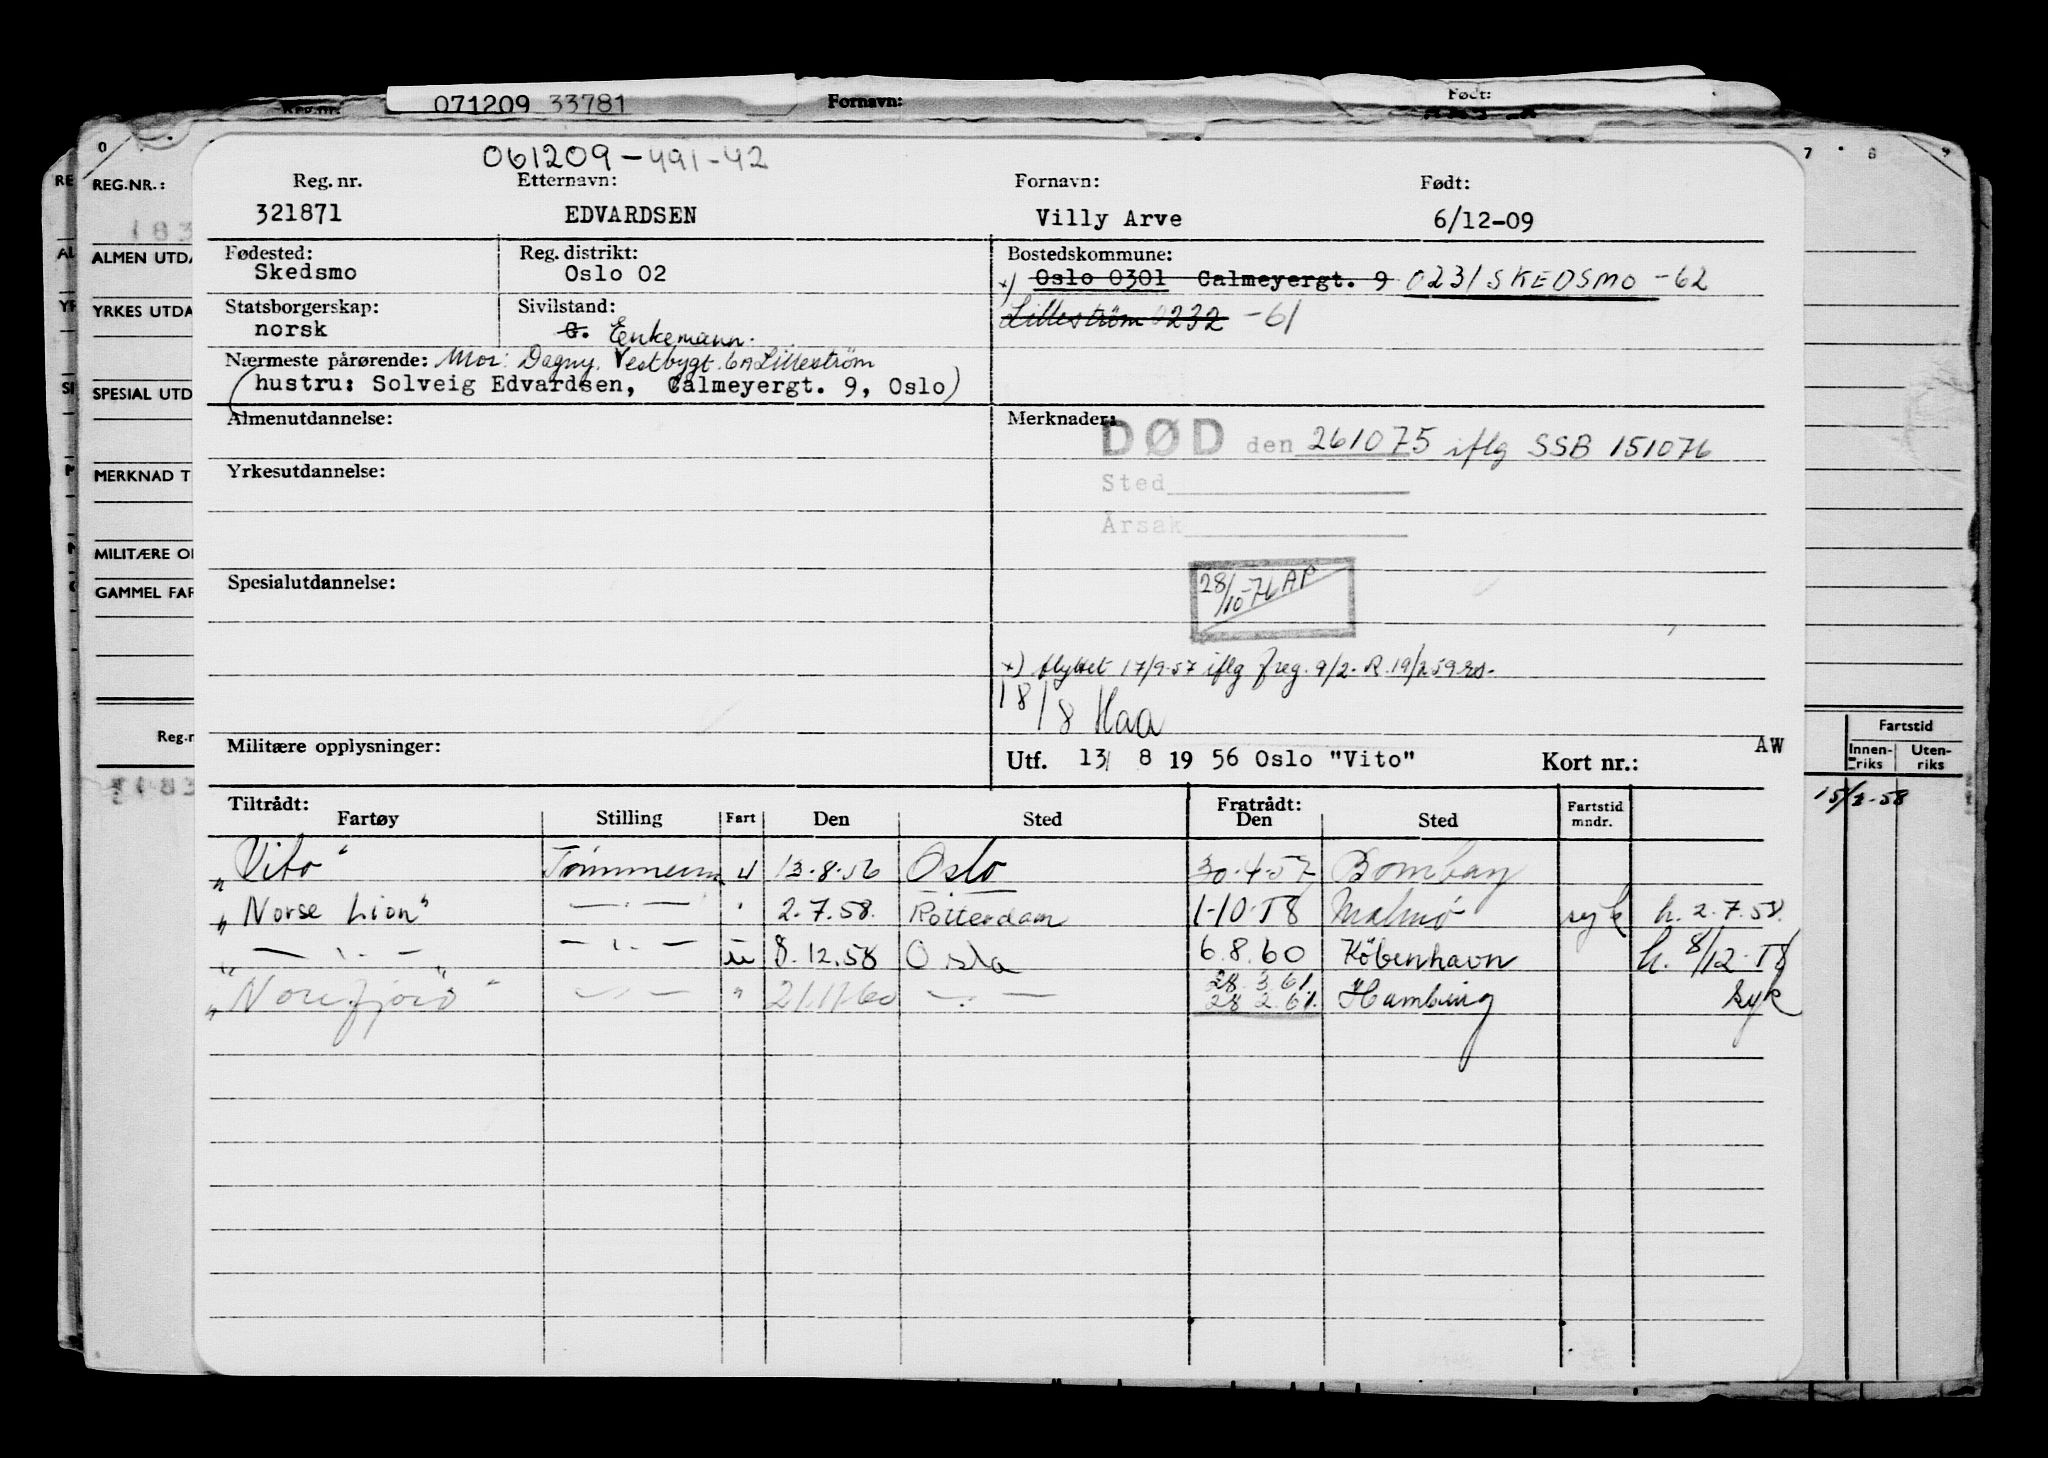 071209 33781 Fornavn: Født:
061209-491-42
Reg. nr. Etternavn: Fornavn: Født:
321871 EDVARDSEN Villy Arve 6/12-09
Fødested: Reg. distrikt: Bostedskommune:
Skedsmo Oslo 02 x) Oslo 0301 Calmeyergt. 9 0231 SKEDSMO -62
Statsborgerskap: Sivilstand: Lilleström 0232 -61
norsk G. Enkemann.
Nærmeste pårørende: Mor: Dagny, Vestbygt. 6A Lilleström
(hustru: Solveig Edvardsen, Calmeyergt. 9, Oslo)
Almenutdannelse: Merknader:
DØD den 261075 iflg SSB 151076
Yrkesutdannelse:
Sted
Årsak
Spesialutdannelse:
28/10-76 AP
x) flyttet 17/9-57 iflg freg. 9/2. R. 19/2 59
18/8 Haa
Militære opplysninger: Utf. 13/ 8 19 56 Oslo "Vito" Kort nr.: AW
Tiltrådt: Fratrådt:
Fartøy Stilling Fart Den Sted Den Sted Fartstid mndr.
"Vito" Tömmerm. u 13.8.56 Oslo 30.4.57 Bombay
"Norse Lion" —.— " 2.7.58. Rotterdam 1-10-58 Malmö syk h. 2.7.58.
— " — — " — u 8.12.58 Oslo 6.8.60 Köbenhavn h. 8/12-58
28.3.61
"Norefjord" — " — " 21.11.60 — . — 28.2.61. Hamburg syk
REG.NR.:
ALMEN UTDA
YRKES UTDA
SPESIAL UTD
MERKNAD T
MILITÆRE O
GAMMEL FAR
Reg.n
Fartstid
Innen-riks Uten-riks
15/2-58